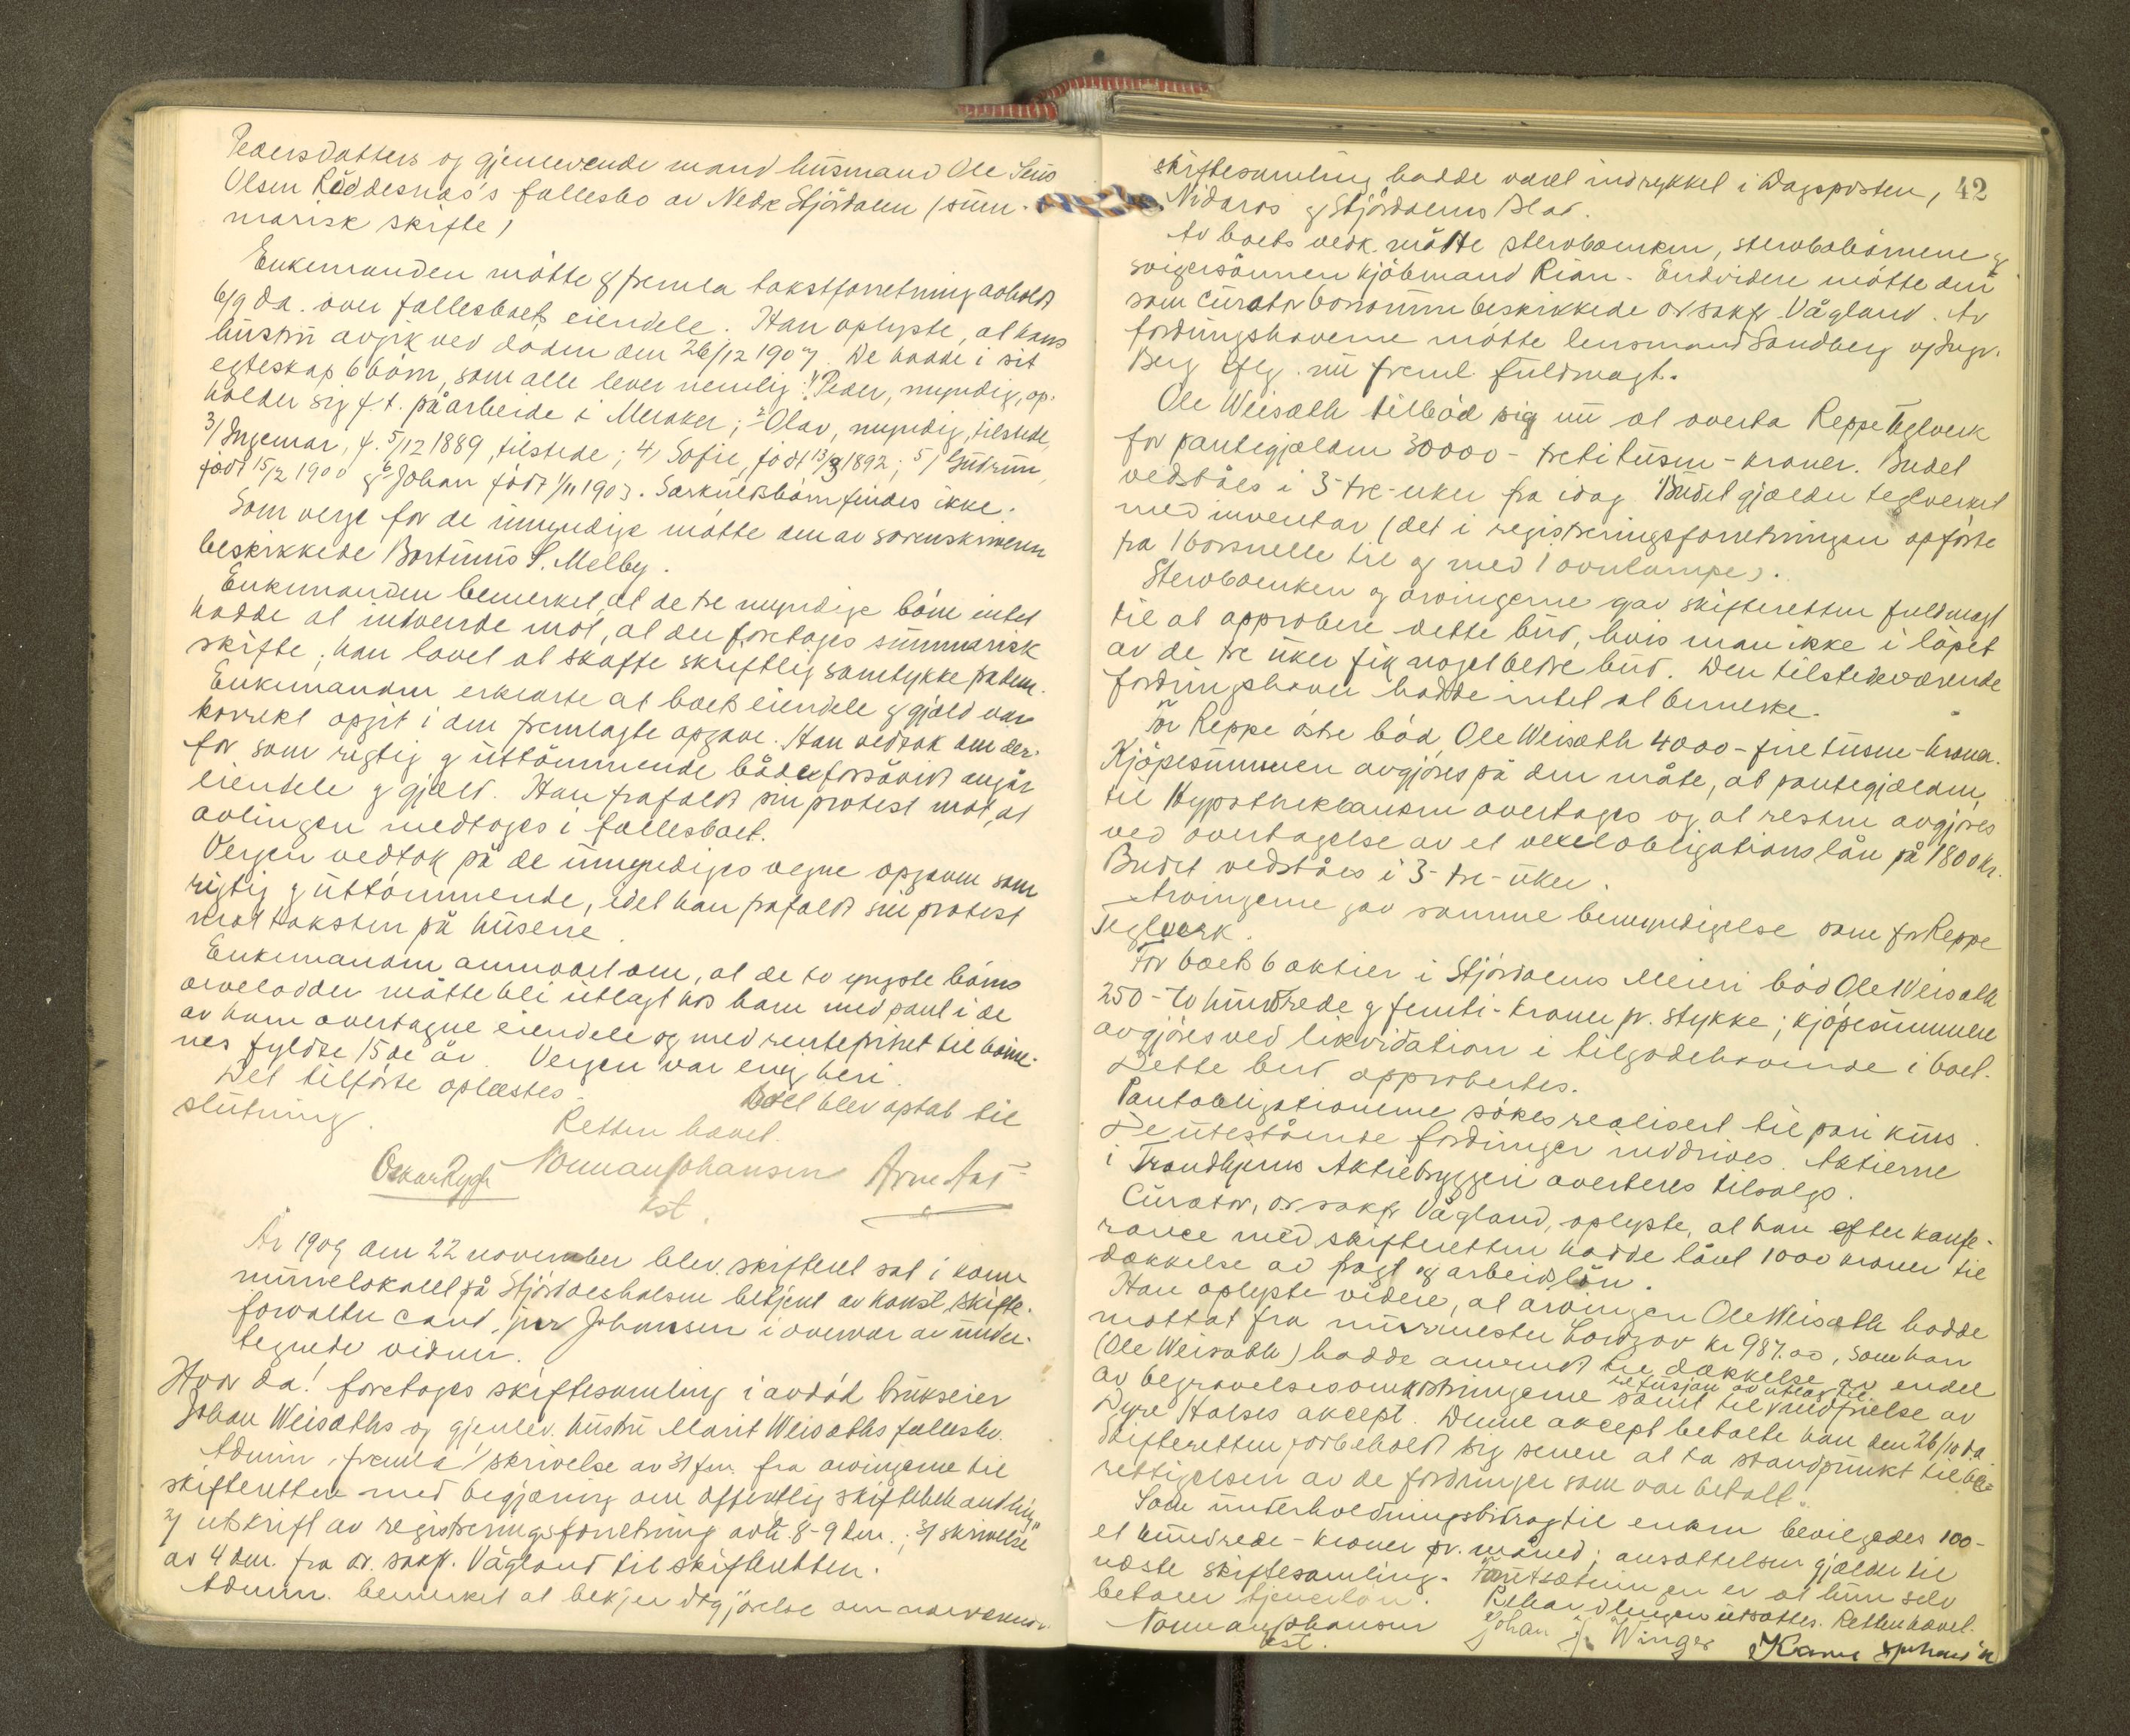 Pedersdatters og gjenlevende mand husmand Ole Jens
Olsen Röddesnæs's fællesbo av Nedre Stjördalen (sum-
marisk skifte)
Enkemanden mötte og fremla takstforretning avholdt
6/9 d.a. over fællesboets eiendele. Han oplyste, at hans
hustru avgik ved döden den 26/12 1907. De hadde i sit
egteskap 6 börn, som alle lever nemlig: 1) Peder, myndig, op-
holder sig f.t. på arbeide i Meraker; 2) Olav, myndig, tilstede,
3) Ingemar, f. 5/12 1889, tilstede; 4) Sofie, födt 13/3 1892; 5) Gudrun,
födt 15/2 1900 og 6) Johan födt 1/11 1903. Særkuldsbörn findes ikke.
Som verge for de umyndige mötte den av sorenskriveren
beskikkede Bortinus S. Melby.
Enkemanden bemerket, at de tre myndige börn intet
hadde at indvende mot, at der foretages summarisk
skifte; han lovet at skaffe skriftlig samtykke fra dem.
Enkemanden erklærte at boets eiendele og gjæld var
korrekt opgit i den fremlagte opgave. Han vedtok den der-
for som rigtig og uttömmende både forsåvidt angår
eiendele og gjæld. Han frafaldt sin protest mot, at
avlingen medtages i fællesboet.
Vergen vedtok på de umyndiges vegne opgaven som
rigtig og uttömmende, idet han frafaldt sin protest
mot taksten på husene.
Enkemanden anmodet om, at de to yngste börns
arvelodder måtte bli utlagt hos ham med pant i de
av ham overtagne eiendele og med rentefrihet til börne-
nes fyldte 15de år. Vergen var enig heri.
Det tilförte oplæstes. Boet blev optat til
slutning.
Retten hævet.
Oskar Rygh Norman Johansen Arne Aas
kst.
År 1909 den 22 november blev skifteret sat i kom-
munelokalet på Stjördalshalsen betjent av konst. skifte-
forvalter cand. jur Johansen i overvær av under-
tegnede vidner.
Hvor da! foretages skiftesamling i avdöd brukseier
Johan Weisæths og gjenlev. hustru Marit Weisæths fællesbo.
Admin. fremla 1) skrivelse av 31 f.m. fra arvingerne til
skifteretten med begjæring om offentlig skiftebehandling,
2) utskrift av registreringsforretning avh. 8-9 d.m.; 3) skrivelse
av 4 d.m. fra o.r. sakf. Vågland til skifteretten.
Admin. bemerket at bekjendtgjörelse om nærværende
42
skiftesamling hadde været indrykket i Dagsposten,
Nidaros og Stjördalens Blad.
Av boets vedk. mötte sterboenken, sterbobörnene og
svigersönnen kjöbmand Rian. Endvidere mötte den
som curator bonorum beskikkede o.r.sakf. Vågland. Av
fordringshaverne mötte lensmand Sandberg og Ingv.
Berg iflg. nu freml. fuldmagt.
Ole Weisæth tilböd sig nu at overta Reppe Teglverk
for pantegjælden 30000 - tretitusen - kroner. Budet
vedståes i 3-tre-uker fra idag. Budet gjælder teglverket
med inventar (det i registreringsforretningen opförte
fra 1 borsnelle til og med 1 ovnlampe).
Sterboenken og arvingerne gav skifteretten fuldmagt
til at approbere dette bud, hvis man ikke i löpet
av de tre uker fik noget bedre bud. Den tilstedeværende
fordringshaver hadde intet at bemerke.
For Reppe östre böd Ole Weisæth 4000 - fire tusen - kroner.
Kjöpesummen avgjöres på den måte, at pantegjælden
til Hypothekbanken overtages og at resten avgjöres
ved overtagelse av et vekselobligationslån på 1800 kr.
Budet vedståes i 3-tre-uker.
Arvingerne gav samme bemyndigelse som for Reppe
Teglverk.
For boets 6 aktier i Stjördalens Meieri böd Ole Weisæth
250 - to hundrede og femti - kroner pr. stykke; kjöpesummen
avgjöres ved likvidation i tilgodehavende i boet.
Dette bud approbertes.
Pantobligationerne sökes realisert til pari kurs.
De utestående fordringer inddrives. Aktierne
i Trondhjems Aktiebryggeri averteres tilsalgs.
Curator, o.r. sakf. Vågland, oplyste, at han efter konfe-
rance med skifteretten hadde lånt 1000 kroner til
dækkelse av fragt og arbeidslön.
Han oplyste videre, at arvingen Ole Weisæth hadde
mottat fra murmester Lowzow kr 987.00, som han
(Ole Weisæth) hadde anvendt til dækkelse av endel
av begravelsesomkostningerne samt til refusjon av utlæg til indfrielse av
Dyre Halses aksept. Denne aksept betalte han den 26/10 d.a.
Skifteretten forbeholdt sig senere at ta standpunkt til be-
rettigelsen av de fordringer som var betalt.
Som underholdningsbidrag til enken bevilgedes 100 -
et hundrede - kroner pr. måned; ansættelsen gjælder til
næste skiftesamling. Forutsætningen er at hun selv
betaler tjenerlön. Behandlingen utsattes. Retten hævet.
Norman Johansen Johan J. Winger Karl Johansen
kst.